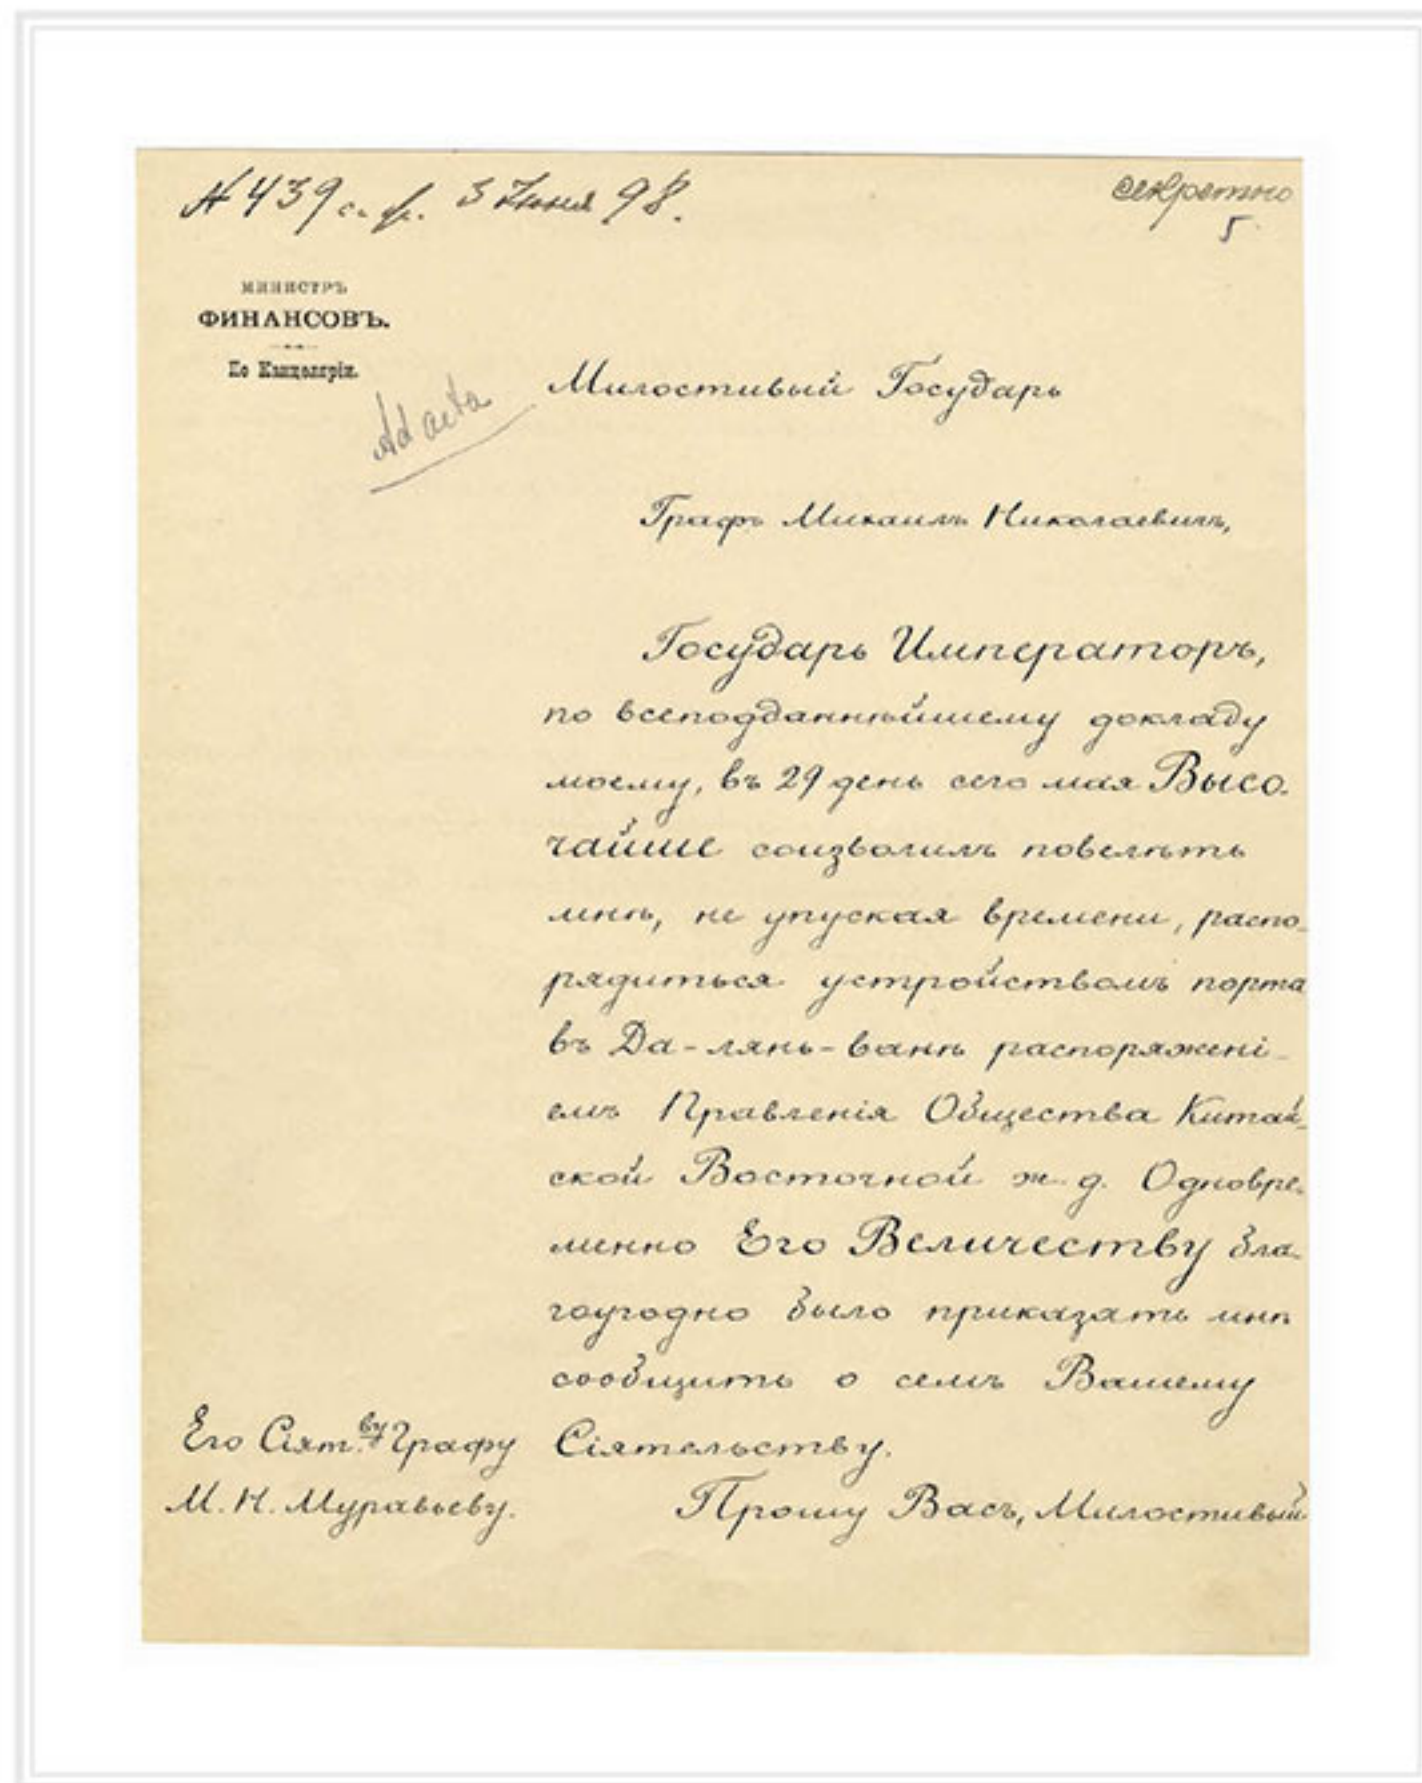 № 439 с. ф. 3 Июня 98.
секретно
5
МИНИСТРЪ
ФИНАНСОВЪ.
По Канцеляріи.
Ad acta
Милостивый Государь
Графъ Михаилъ Николаевичъ,
Государь Императоръ,
по всеподданнѣйшему докладу
моему, въ 29 день сего мая Высо-
чайше соизволилъ повелѣть
мнѣ, не упуская времени, распо-
рядиться устройствомъ порта
въ Да-лянь-ванѣ распоряжені-
емъ Правленія Общества Китай-
ской Восточной ж. д. Одновре-
менно Его Величеству бла-
гоугодно было приказать мнѣ
сообщить о семъ Вашему
Сіятельству.
Прошу Васъ, Милостивый
Его Сіят.ву Графу
М. Н. Муравьеву.